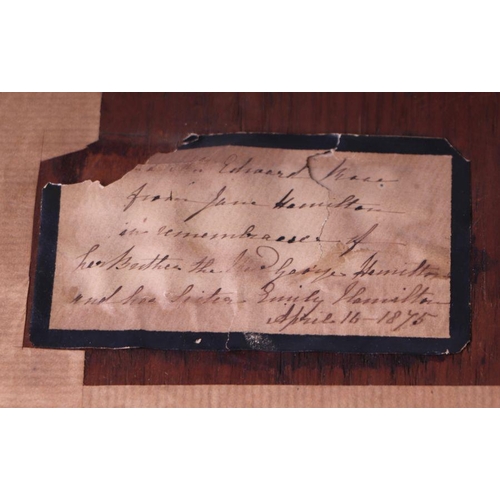 Edward Rose
from Jane Hamilton
in remembrance of
her Brother the Revd George Hamilton
and her Sister Emily Hamilton
April 16 1875